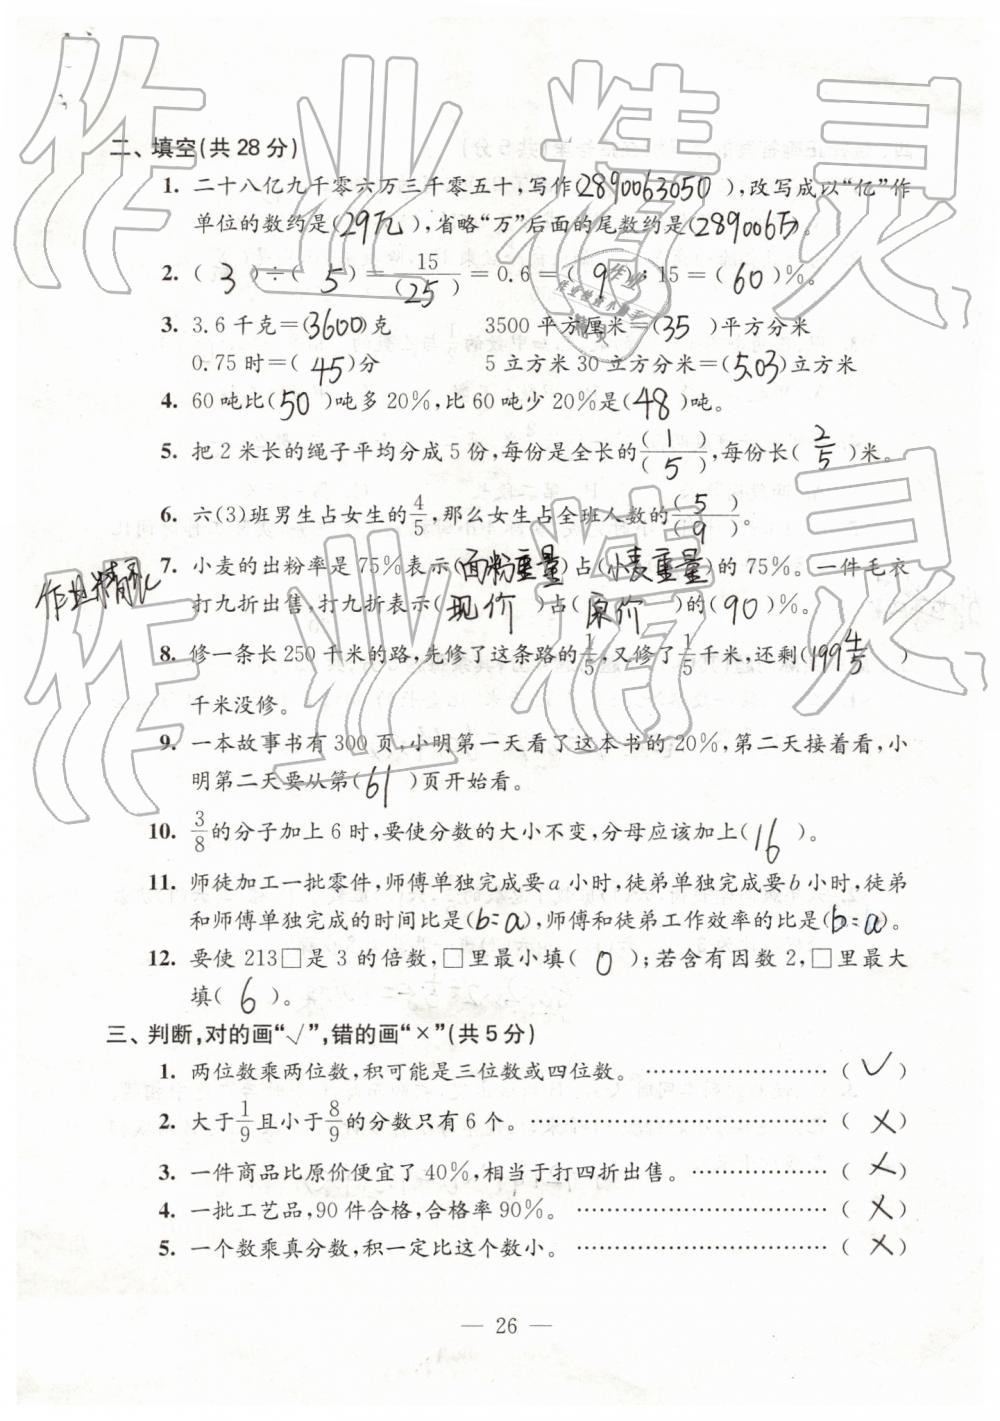 作业精灵
二、填空(共 28 分)
1. 二十八亿九千零六万三千零五十,写作(2890063050),改写成以“亿”作
单位的数约是(29亿),省略“万”后面的尾数约是(289006万)。
2. (3)÷(5)=15/(25)=0.6=(9):15=(60)%。
3. 3.6 千克=(3600)克 3500 平方厘米=(35)平方分米
0.75 时=(45)分 5 立方米 30 立方分米=(5.03)立方米
4. 60 吨比(50)吨多 20%,比 60 吨少 20%是(48)吨。
5. 把 2 米长的绳子平均分成 5 份,每份是全长的(1)/(5),每份长(2/5)米。
6. 六(3)班男生占女生的4/5,那么女生占全班人数的(5)/(9)。
7. 小麦的出粉率是 75%表示(面粉重量)占(小麦重量)的 75%。一件毛衣
作业精灵
打九折出售,打九折表示(现价)占(原价)的(90)%。
8. 修一条长 250 千米的路,先修了这条路的1/5,又修了1/5千米,还剩(199 4/5)
千米没修。
9. 一本故事书有 300 页,小明第一天看了这本书的 20%,第二天接着看,小
明第二天要从第(61)页开始看。
10. 3/8的分子加上 6 时,要使分数的大小不变,分母应该加上(16)。
11. 师徒加工一批零件,师傅单独完成要 a 小时,徒弟单独完成要 b 小时,徒弟
和师傅单独完成的时间比是(b:a),师傅和徒弟工作效率的比是(b:a)。
12. 要使 213□是 3 的倍数,□里最小填(0);若含有因数 2,□里最大
填(6)。
三、判断,对的画“√”,错的画“×”(共 5 分)
1. 两位数乘两位数,积可能是三位数或四位数。 ……………………(√)
2. 大于1/9且小于8/9的分数只有 6 个。 ……………………(×)
3. 一件商品比原价便宜了 40%,相当于打四折出售。 ……………………(×)
4. 一批工艺品,90 件合格,合格率 90%。 ……………………(×)
5. 一个数乘真分数,积一定比这个数小。 ……………………(×)
— 26 —